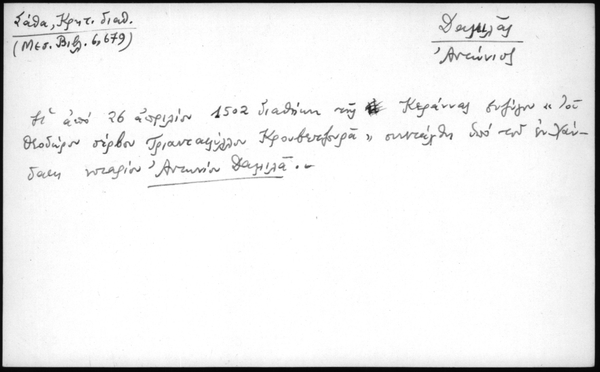 Σάθα, Κρητ. διαθ.
(Μεσ. Βιβλ. 6, 679)
Δαμιλᾶς
Ἀντώνιος
Ἡ ἀπό 26 ἀπριλίου 1502 διαθήκη τῆς Κεράννας συζύγου « τοῦ
Θεοδώρου σέρβου Τριανταφύλλου Κρουβεντζουρᾶ » συνετάχθη ὑπό τοῦ ἐν Χάν-
δακι νοταρίου Ἀντωνίου Δαμιλᾶ.-